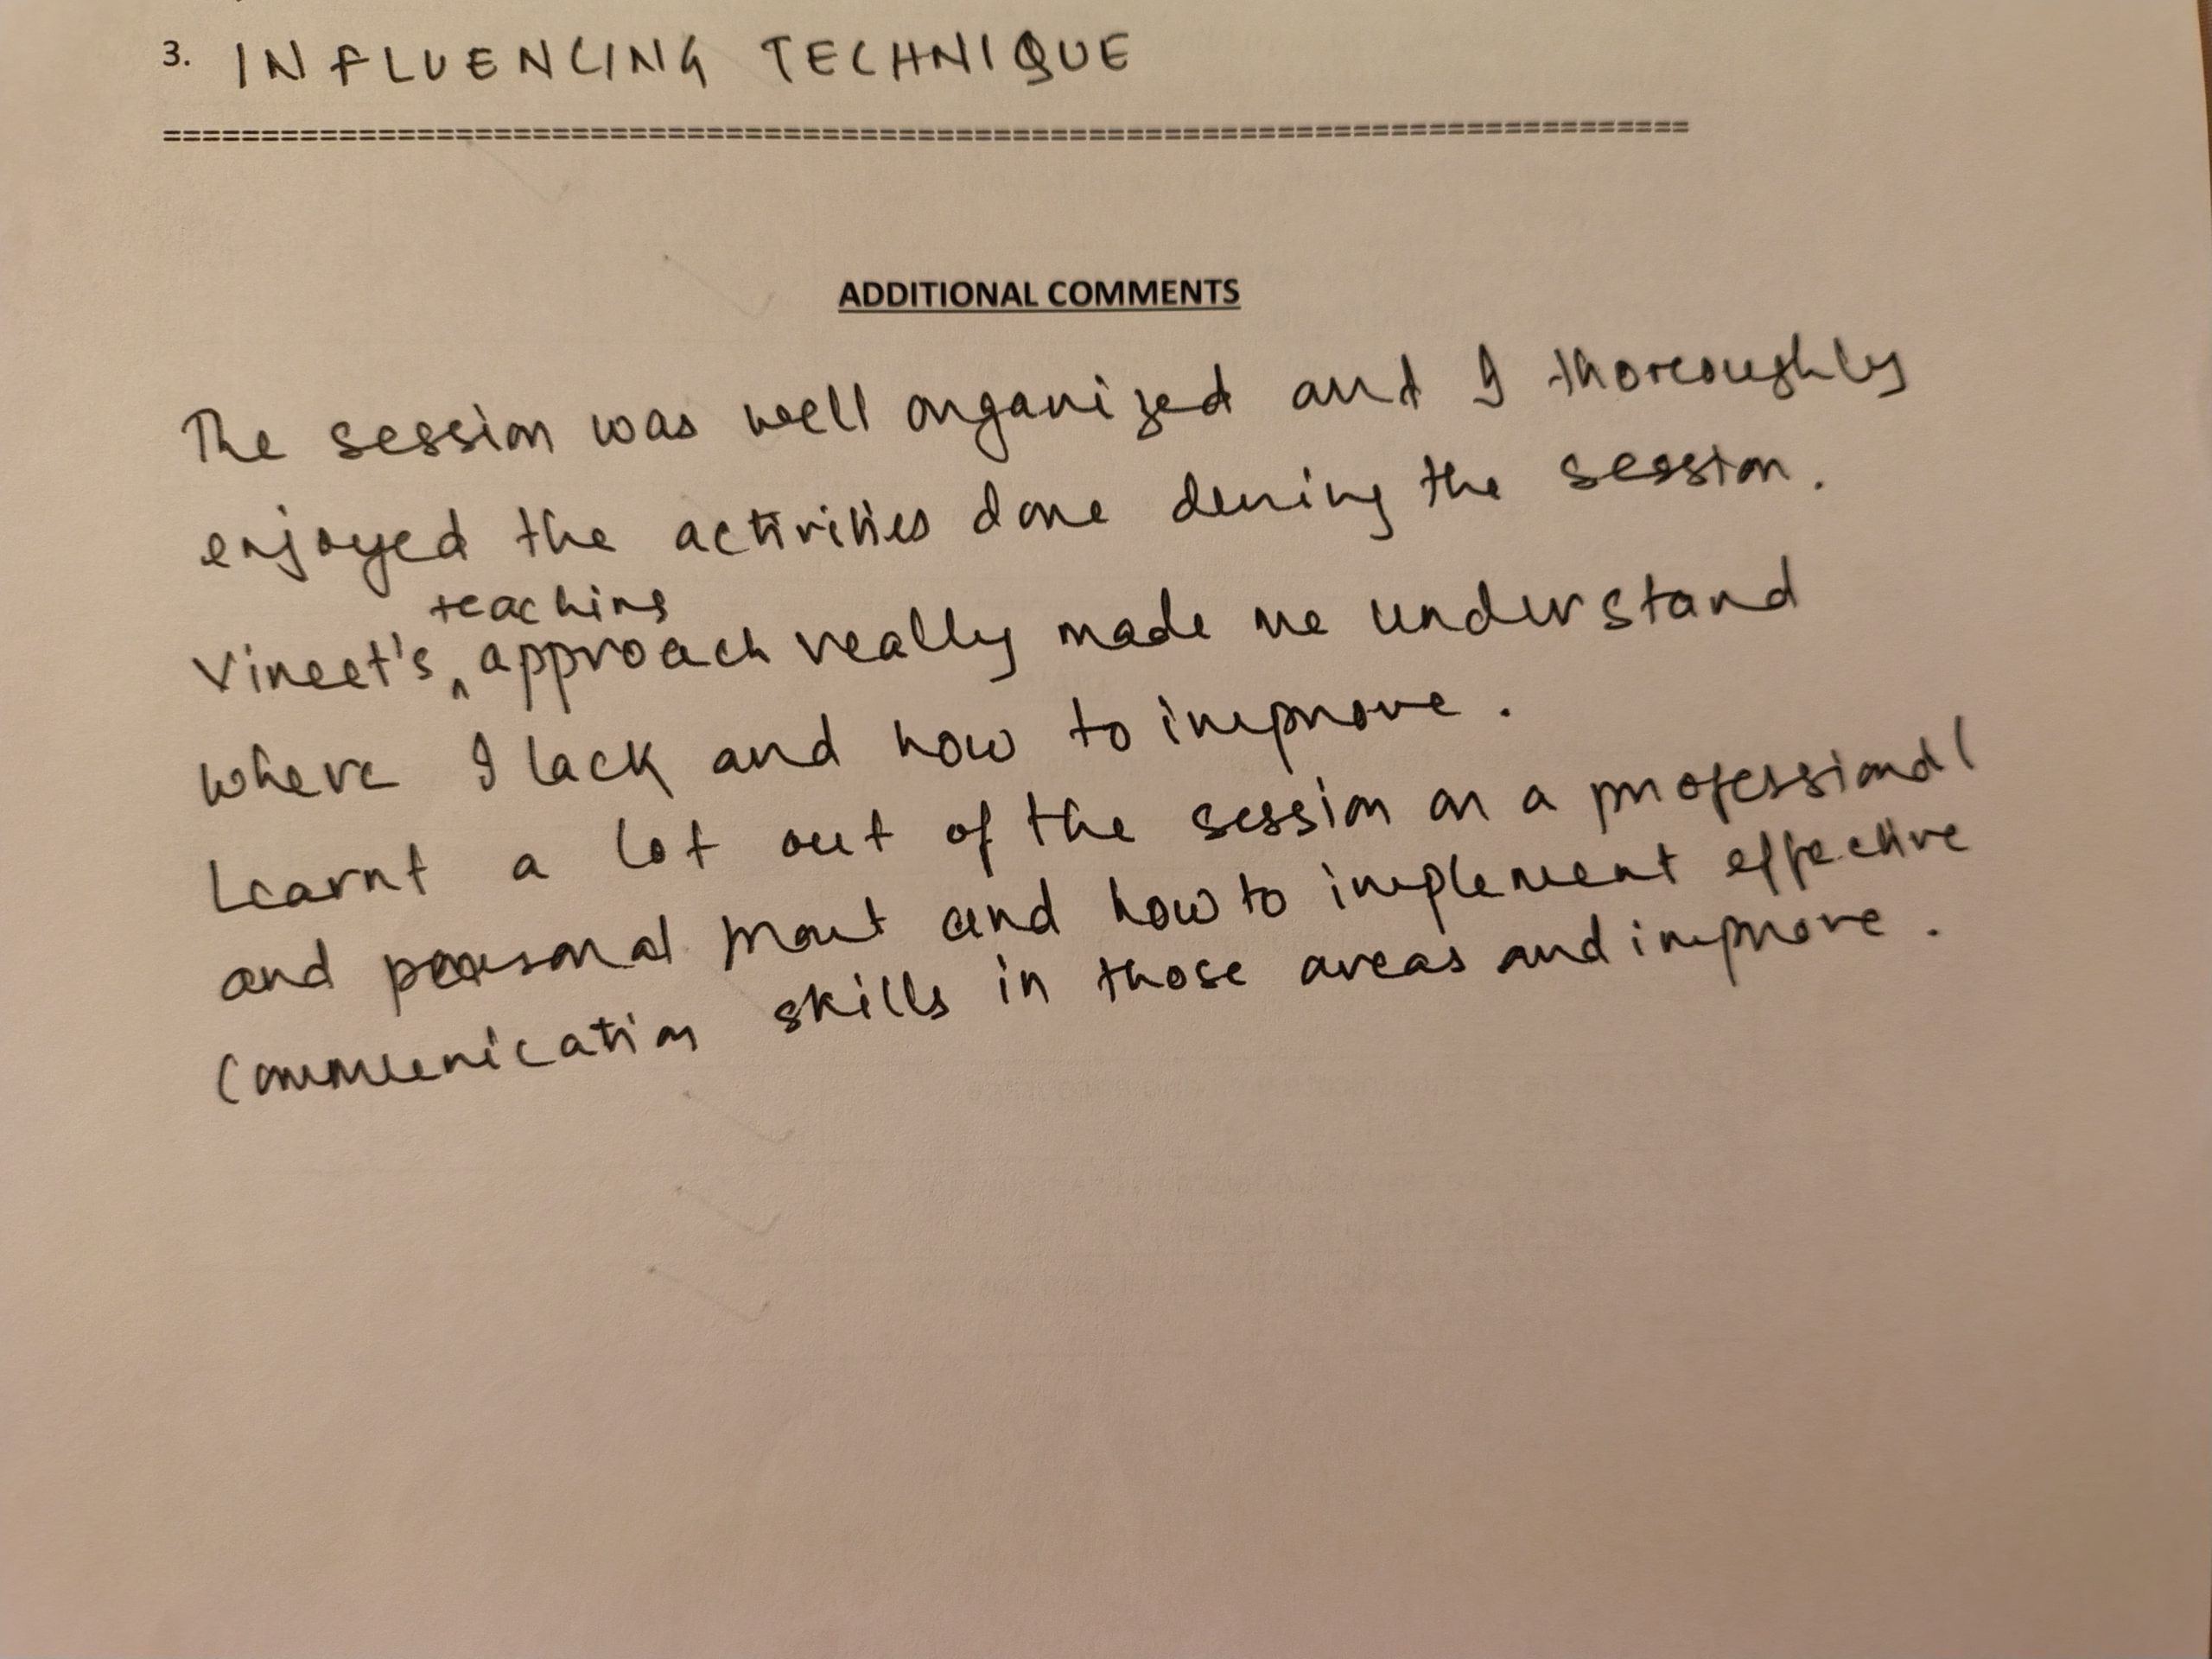 3. INFLUENCING TECHNIQUE
================================================================================
ADDITIONAL COMMENTS
The session was well organized and I thoroughly
enjoyed the activities done during the session.
Vineet's teaching approach really made me understand
where I lack and how to improve.
Learnt a lot out of the session on a professional
and personal front and how to implement effective
Communication skills in those areas and improve.